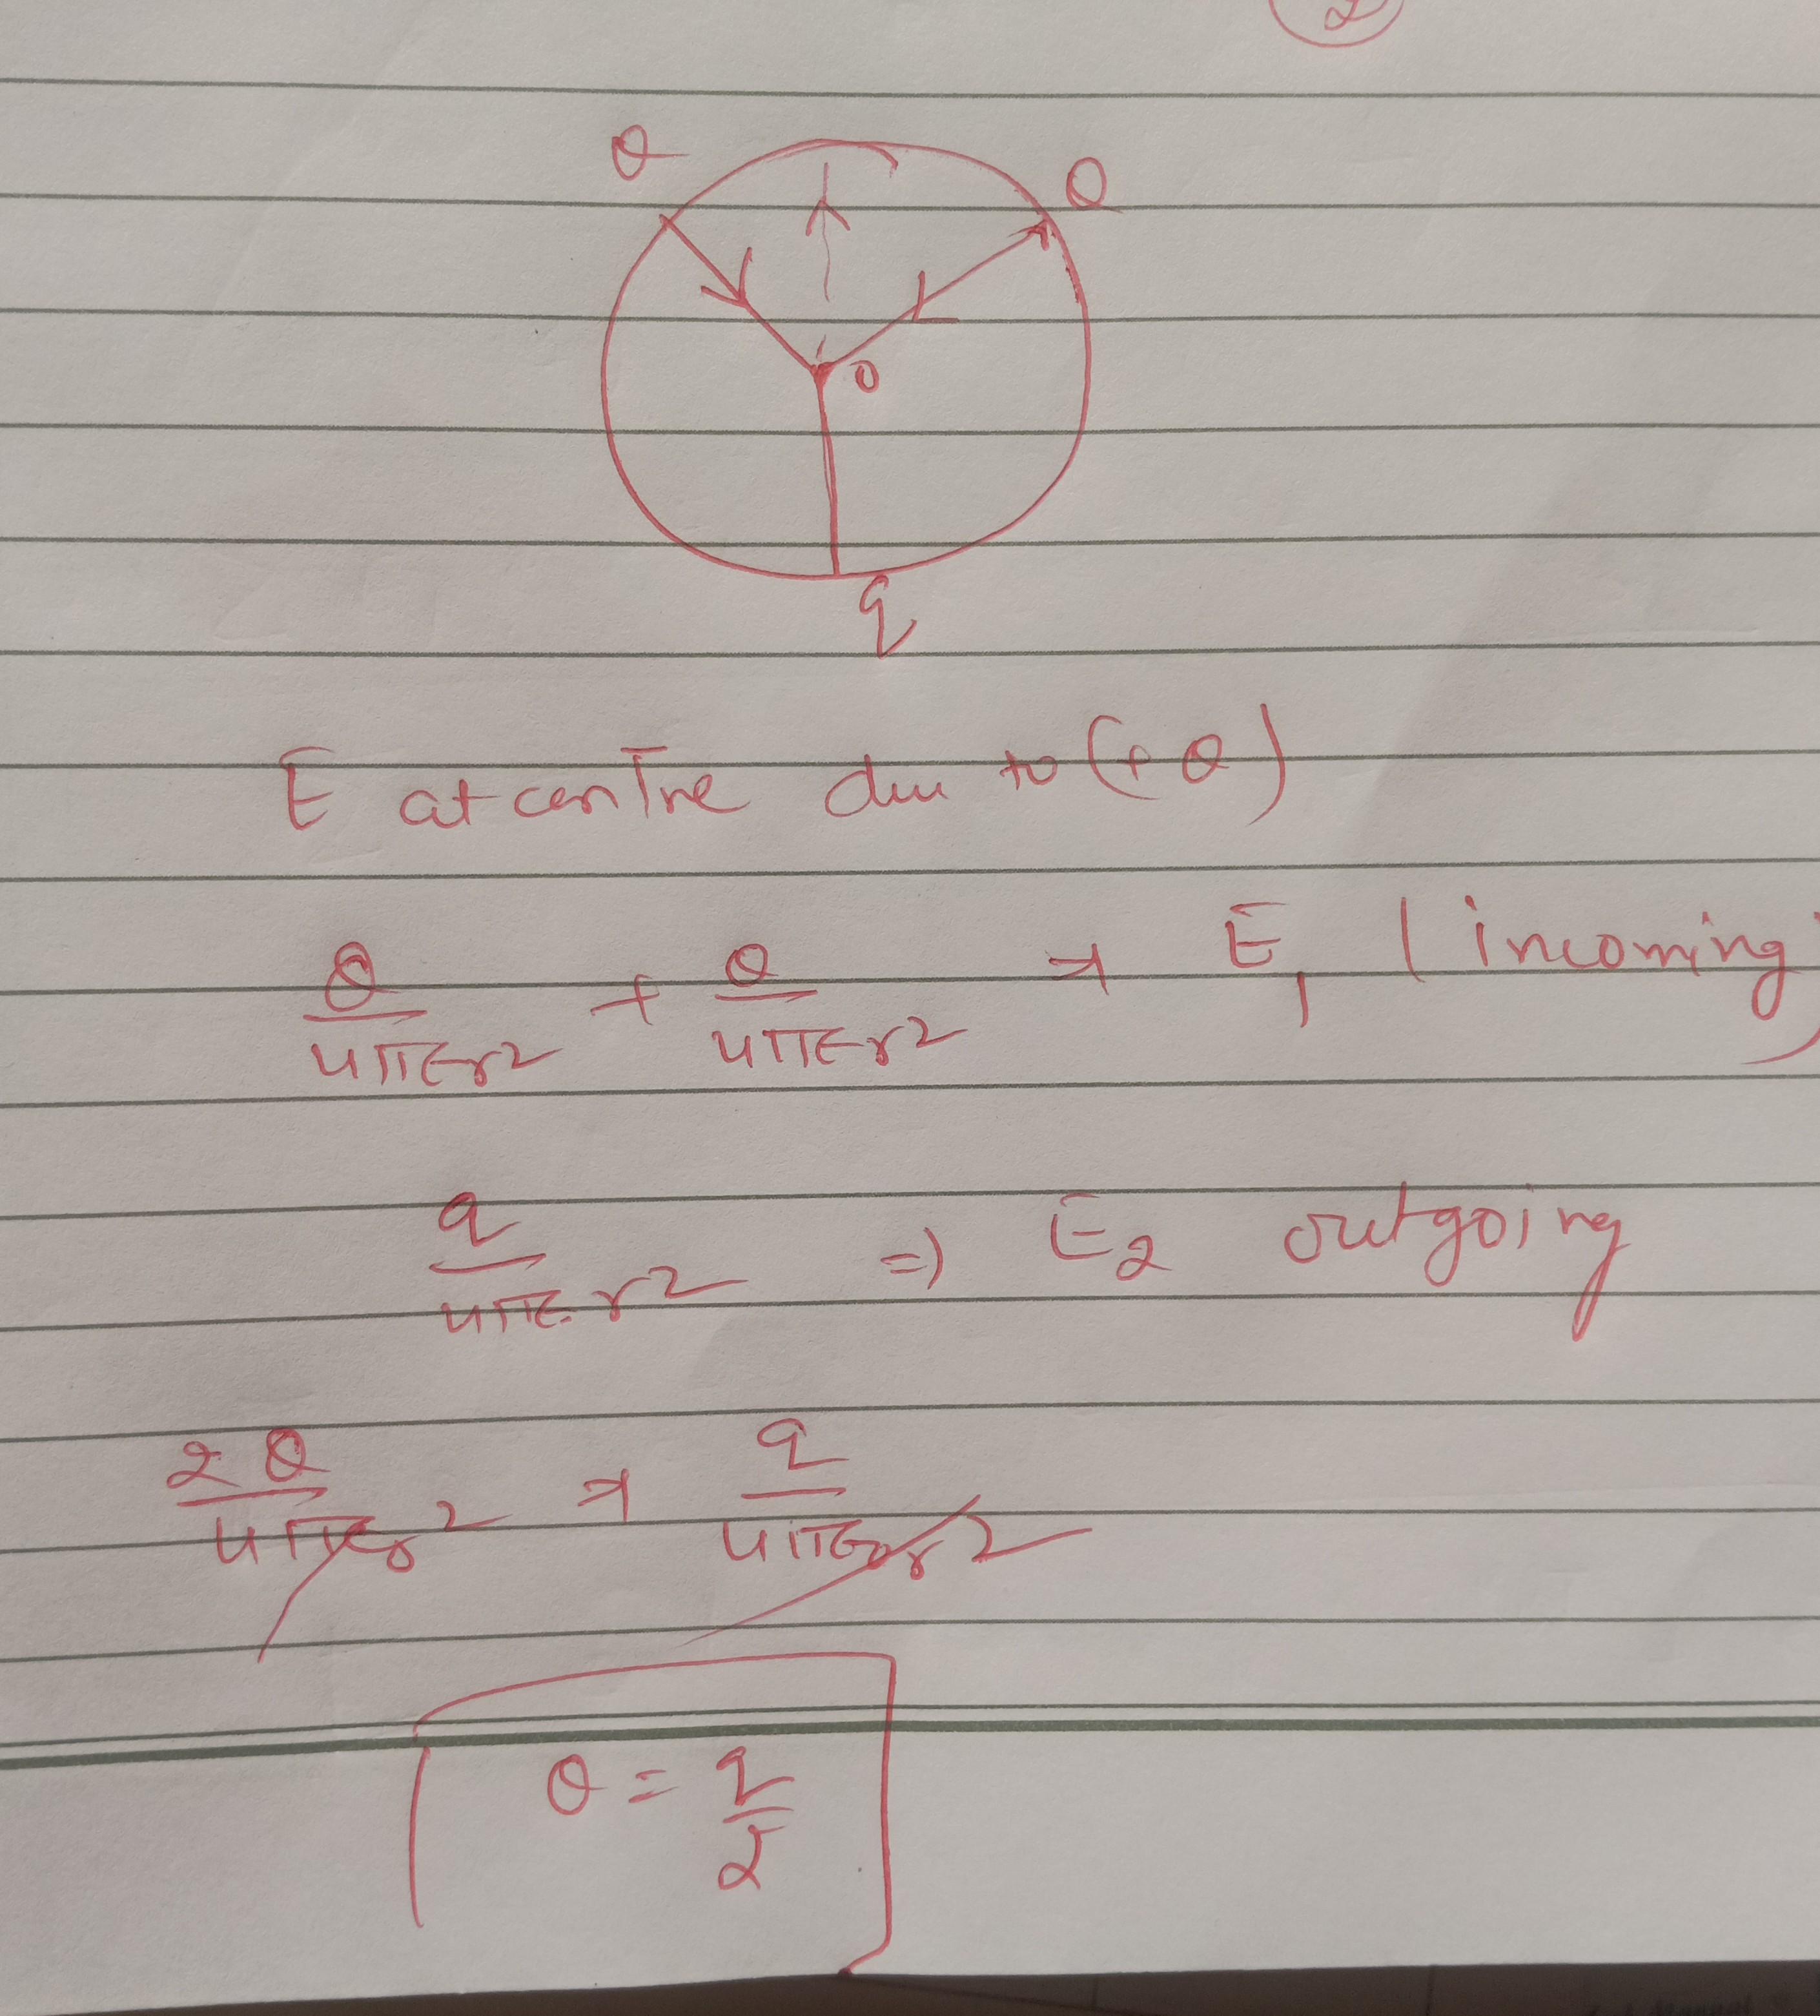 2
Q Q
O
q
E at centre due to (+Q)
Q/4πεr² + Q/4πεr² ⇒ E₁ (incoming)
q/4πε.r² ⇒ E₂ outgoing
2Q/4πεr² ⇒ q/4πε₀r²
Q = q/2